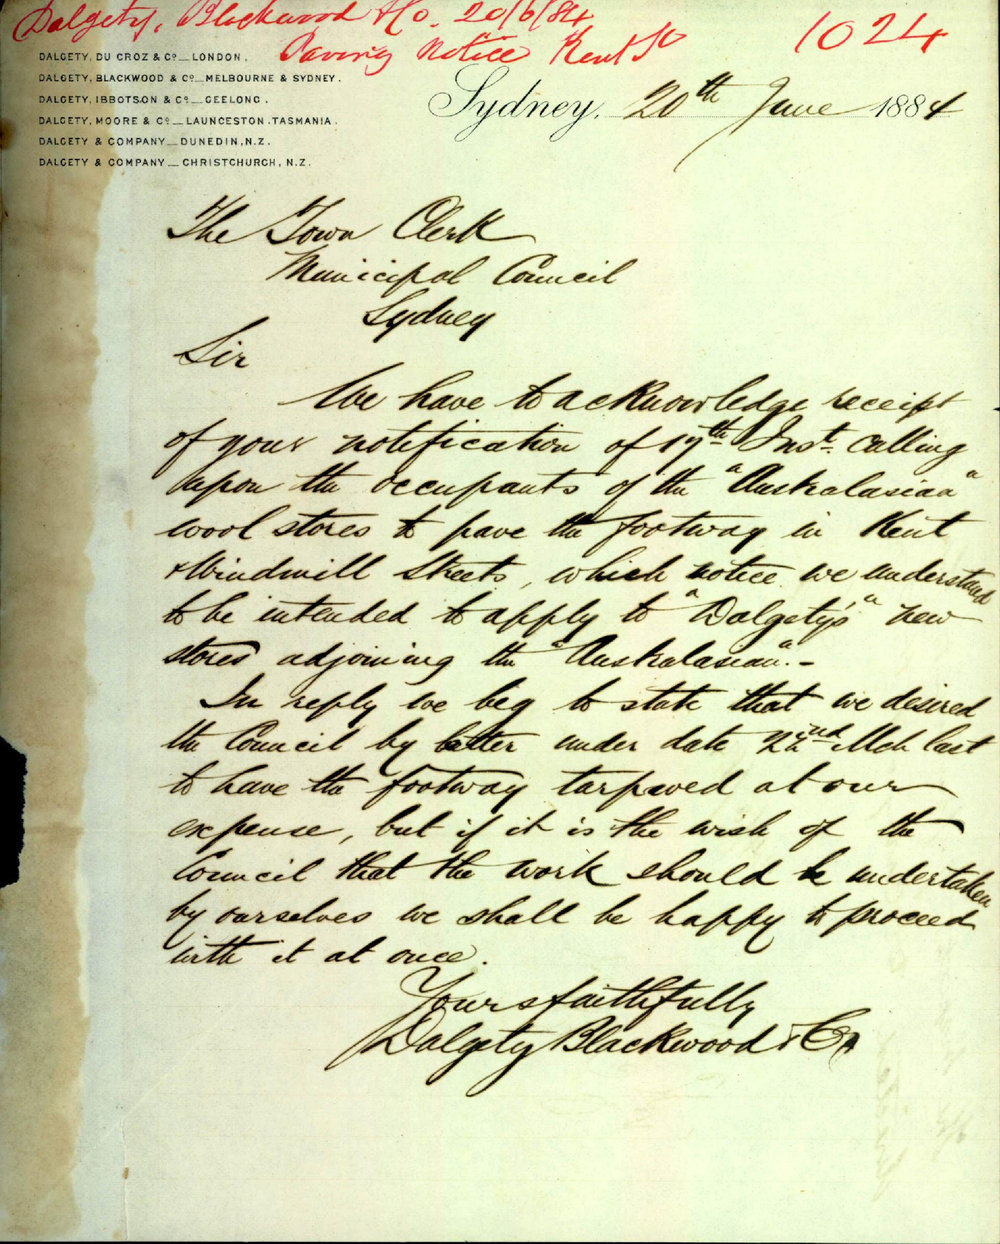 Dalgety, Blackwood & Co. 20/6/84
Paving Notice Kent St
1024
DALGETY, DU CROZ & Co_LONDON.
DALGETY, BLACKWOOD & Co_MELBOURNE & SYDNEY.
DALGETY, IBBOTSON & Co_GEELONG.
DALGETY, MOORE & Co_LAUNCESTON.TASMANIA.
DALGETY & COMPANY_DUNEDIN,N.Z.
DALGETY & COMPANY_CHRISTCHURCH, N.Z.
Sydney, 20th June 1884
The Town Clerk
Municipal Council
Sydney
Sir
We have to acknowledge receipt
of your notification of 17th Inst. calling
upon the occupants of the "Australasian"
wool stores to pave the footway in Kent
& Windmill Streets, which notice we understand
to be intended to apply to "Dalgety's" new
stores adjoining the "Australasian".-
In reply we beg to state that we desired
the Council by letter under date 22nd Mch last
to have the footway tarpaved at our
expense, but if it is the wish of the
Council that the work should be undertaken
by ourselves we shall be happy to proceed
with it at once.
Yours faithfully
Dalgety Blackwood & Co